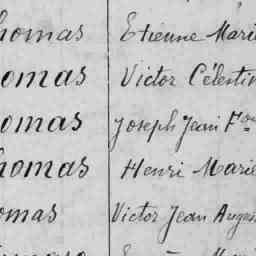 homas Etienne Mari
omas Victor Célestin
omas Joseph Jean Fои
homas Henri Marie
omas Victor Jean Augus